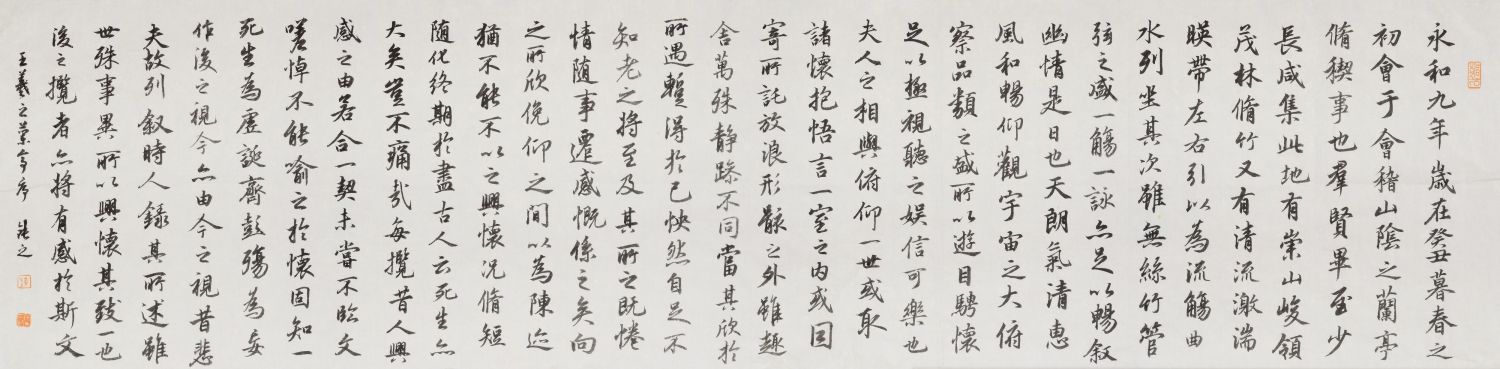 永和九年歲在癸丑暮春之
初會于會稽山陰之蘭亭
脩稧事也羣賢畢至少
長咸集此地有崇山峻領
茂林脩竹又有清流激湍
暎帶左右引以為流觴曲
水列坐其次雖無絲竹管
弦之盛一觴一詠亦足以暢敘
幽情是日也天朗氣清惠
風和暢仰觀宇宙之大俯
察品類之盛所以遊目騁懷
足以極視聽之娛信可樂也
夫人之相與俯仰一世或取
諸懷抱悟言一室之内或因
寄所託放浪形骸之外雖趣
舍萬殊静躁不同當其欣於
所遇蹔得於己怏然自足不
知老之将至及其所之既惓
情随事遷感慨係之矣向
之所欣俛仰之間以為陳迹
猶不能不以之興懷况脩短
随化終期於盡古人云死生亦
大矣豈不痛哉每攬昔人興
感之由若合一契未嘗不臨文
嗟悼不能喻之於懷固知一
死生為虛誕齊彭殤為妄
作後之視今亦由今之視昔悲
夫故列叙時人錄其所述雖
世殊事異所以興懷其致一也
後之攬者亦将有感於斯文
王羲之蘭亭序 之